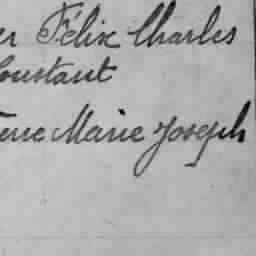 Félix Charles
Constant
Marie Joseph